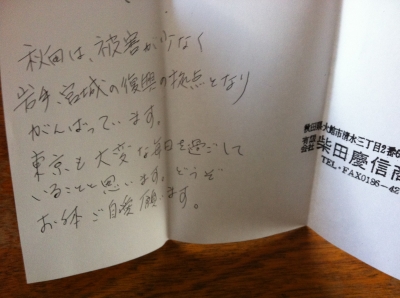 秋田は、被害が少なく
岩手、宮城の復興の拠点となり
がんばっています。
東京も大変な毎日を過ごして
いることと思います。どうぞ
お体ご自愛願います。
秋田県大館市清水三丁目2番6
有限会社 柴田慶信商
TEL・FAX0186-42